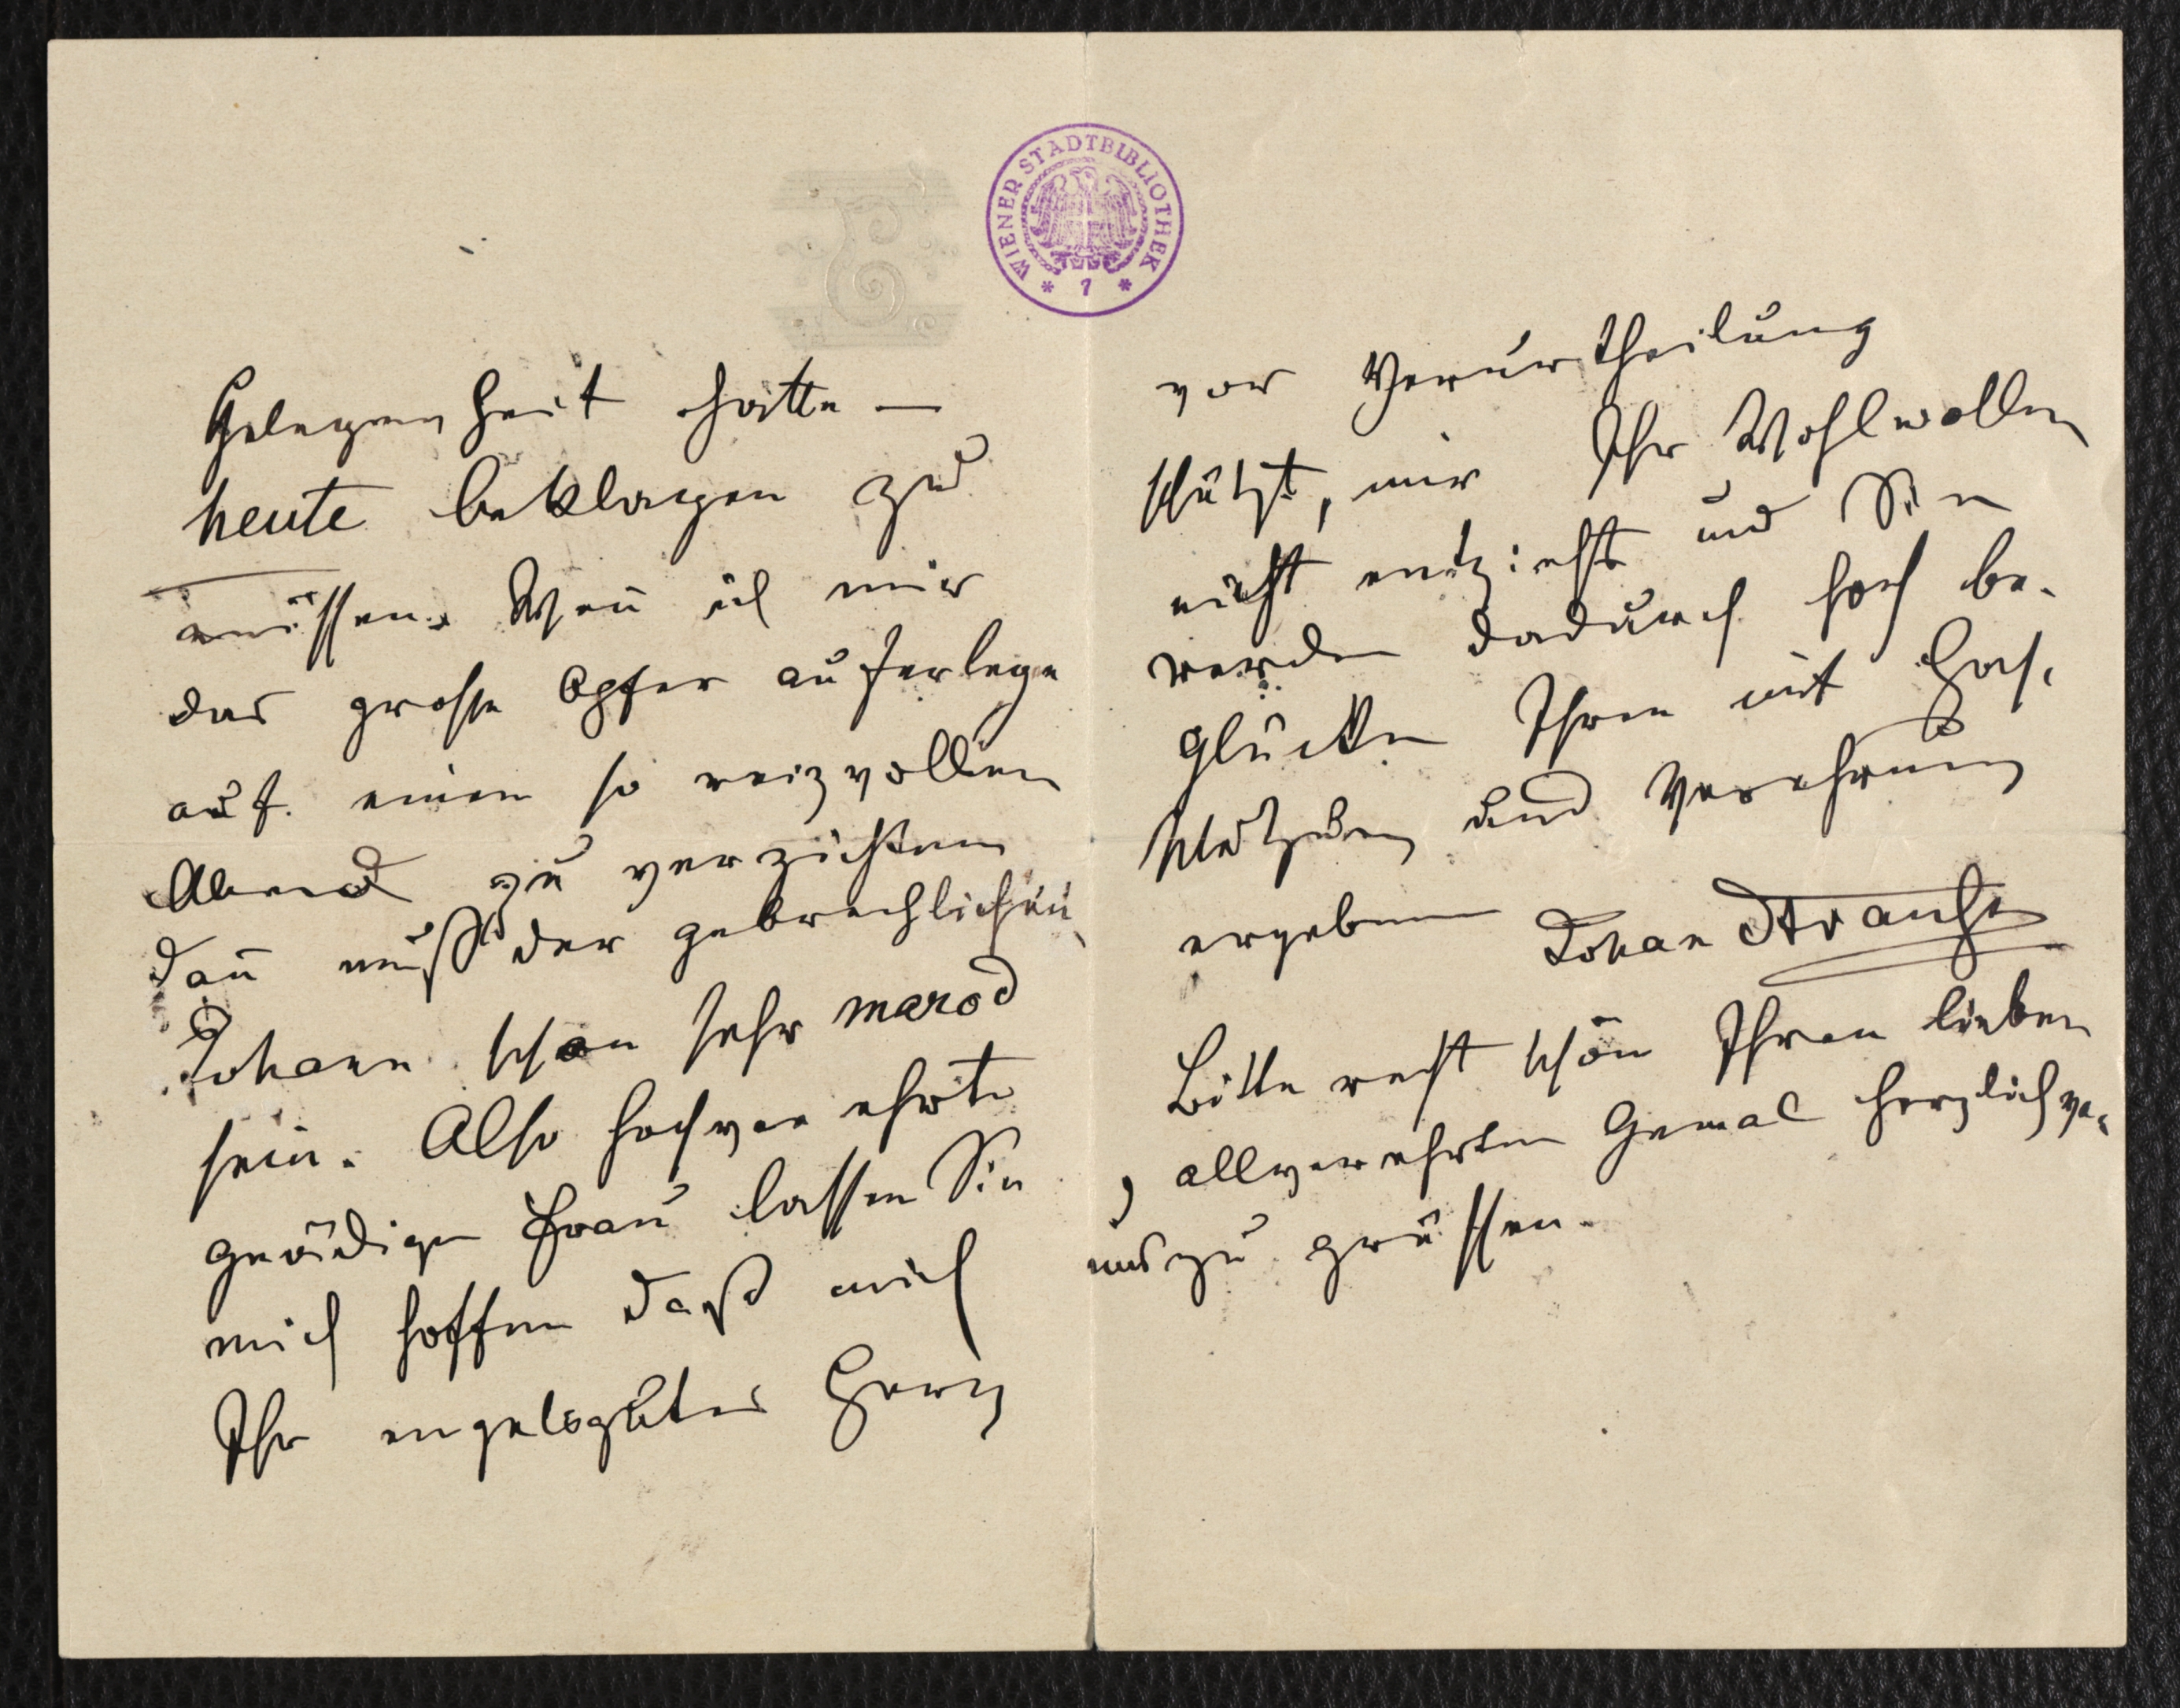 WIENER STADTBIBLIOTHEK
* 1 *
Gelegenheit hätte —
heute beklagen zu
müssen. Weñ ich mir
das grosse Opfer auferlege
auf einen so reizvollen
Abend zu verzichten
dañ muß der gebrechliche
Johann schon sehr marod
sein. Also hochverehrte
gnädige Frau lassen Sie
mich hoffen daß mich
Ihr engelsgutes Herz
vor Verurtheilung
schützt, mir Ihr Wohlwollen
nicht entzieht und Sie
werden dadurch hoch be-
glücken Ihren mit Hoch-
schätzung und Verehrung
ergebenen Johann Strauss
Bitte recht schön Ihren lieben
, allverehrten Gemal herzlich von
uns zu grüssen.